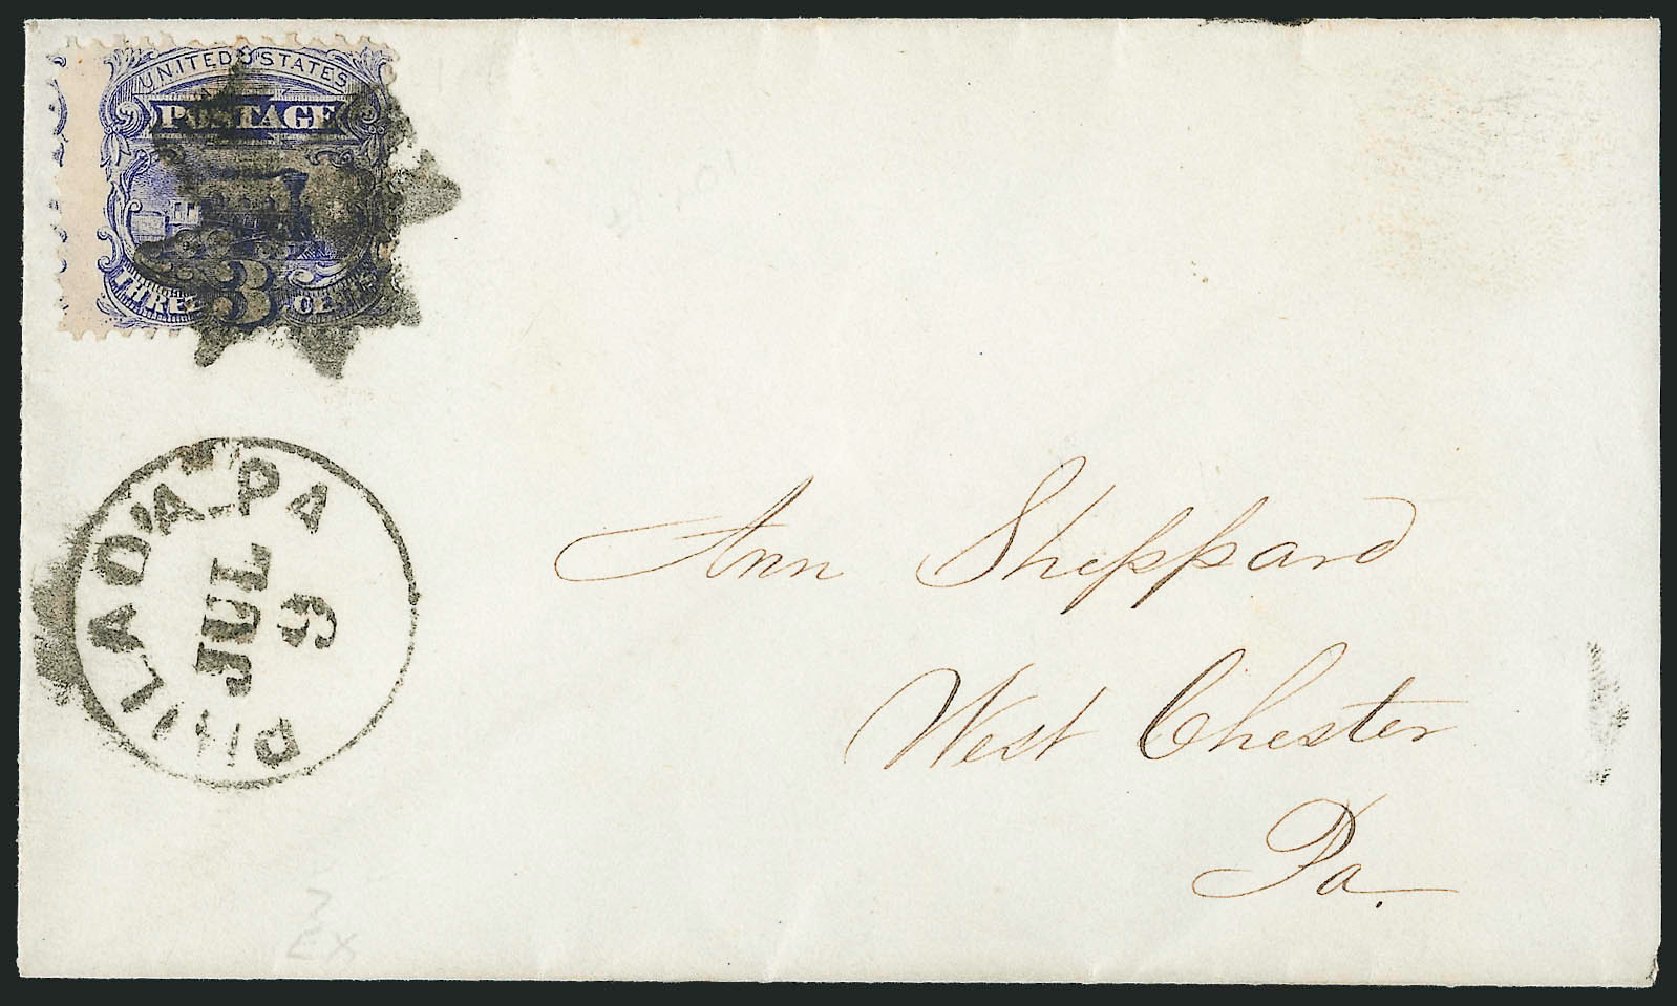 UNITED STATES
POSTAGE
THREE 3 CENTS
PHILAD'A. PA
JUL
9
Ann Sheppard
West Chester
Pa.
7
EX